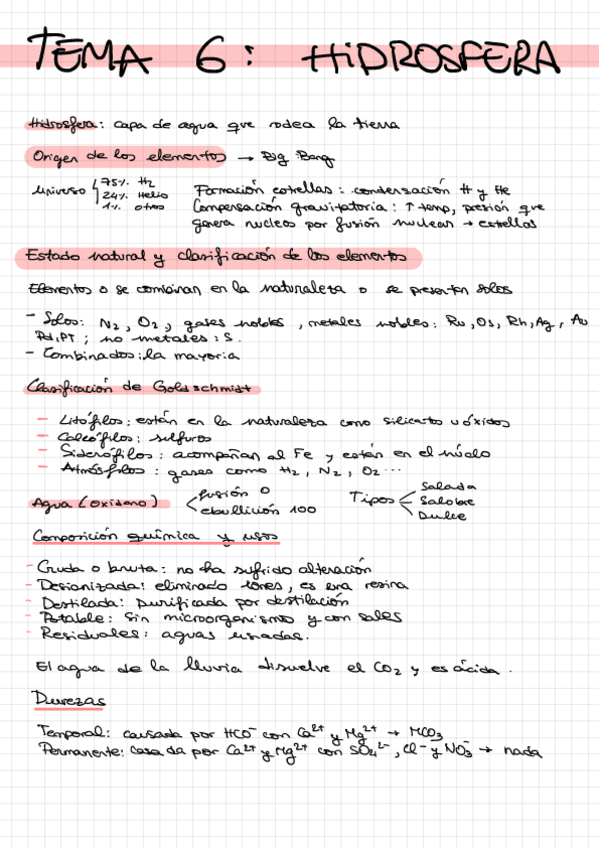 TEMA 6: HIDROSFERA
Hidrosfera: capa de agua que rodea la tierra
Origen de los elementos → Big Bang
universo { 75% H2
24% Helio
1% otros
Formación estrellas: condensación H y He
Compensación gravitatoria: ↑ temp, presión que
genera nucleos por fusión nuclear → estrellas
Estado natural y clasificación de los elementos
Elementos o se combinan en la naturaleza o se presentan solos
- Solos: N2, O2, gases nobles, metales nobles: Ru, Os, Rh, Ag, Au
Pd, PT; no metales: S.
- Combinados: la mayoria
Clasificación de Goldschmidt
- Litófilos: están en la naturaleza como silicatos u óxidos
- Calcófilos: sulfuros
- Siderófilos: acompañan al Fe y están en el núcleo
- Atmósfilos: gases como H2, N2, O2...
Agua (oxidano) < fusión 0
ebullición 100
Tipos < Salada
Salobre
Dulce
Composición química y usos
- Cruda o bruta: no ha sufrido alteración
- Desionizada: eliminado iones, es una resina
- Destilada: purificada por destilación
- Potable: sin microorganismo y con sales
- Residuales: aguas usadas.
El agua de la lluvia disuelve el CO2 y es ácida.
Durezas
Temporal: causada por HCO⁻ con Ca²⁺ y Mg²⁺ → MCO3
Permanente: casada por Ca²⁺ y Mg²⁺ con SO4²⁻, Cl⁻ y NO3⁻ → nada